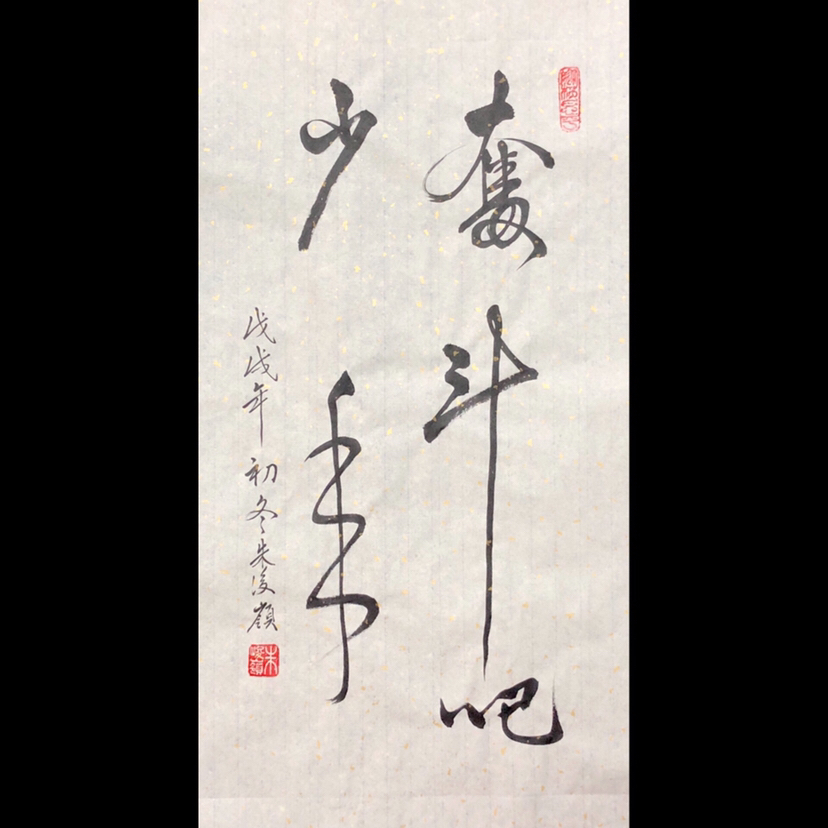 奋斗吧
少年
戊戌年初冬朱浚嶺